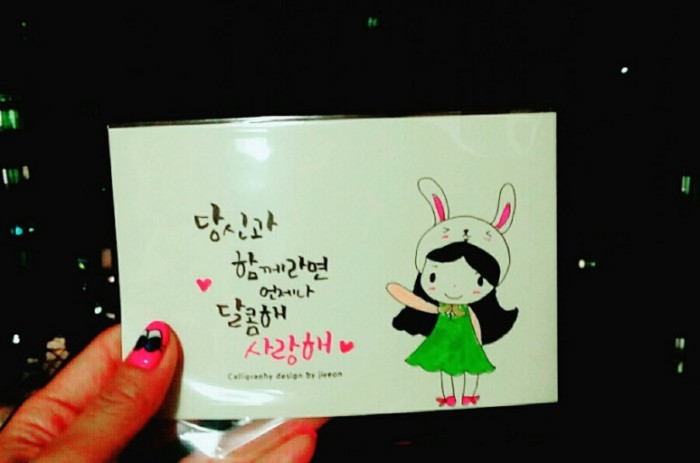 당신과
함께라면
언제나
달콤해
사랑해
Calligraphy design by jieeon